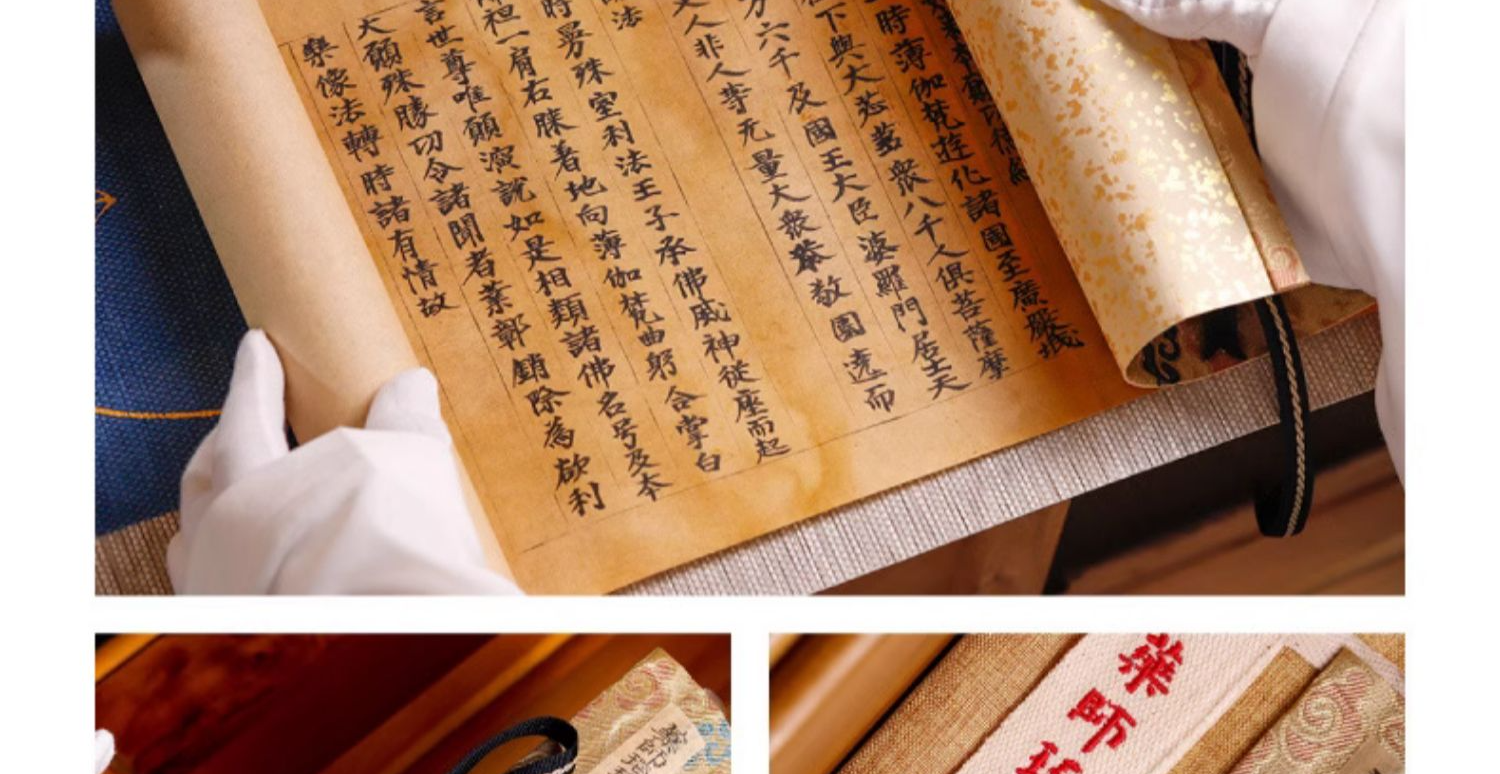 時薄伽梵遊化諸國至廣嚴城
下與大苾蒭衆八千人俱菩薩摩
六千及國王大臣婆羅門居士天
人非人等无量大衆恭敬圍遶而
法
時曼殊室利法王子承佛威神從座而起
袒一肩右膝著地向薄伽梵曲躬合掌白
言世尊唯願演說如是相類諸佛名号及本
大願殊勝功令諸聞者業鄣銷除為欲利
樂像法轉時諸有情故
藥師